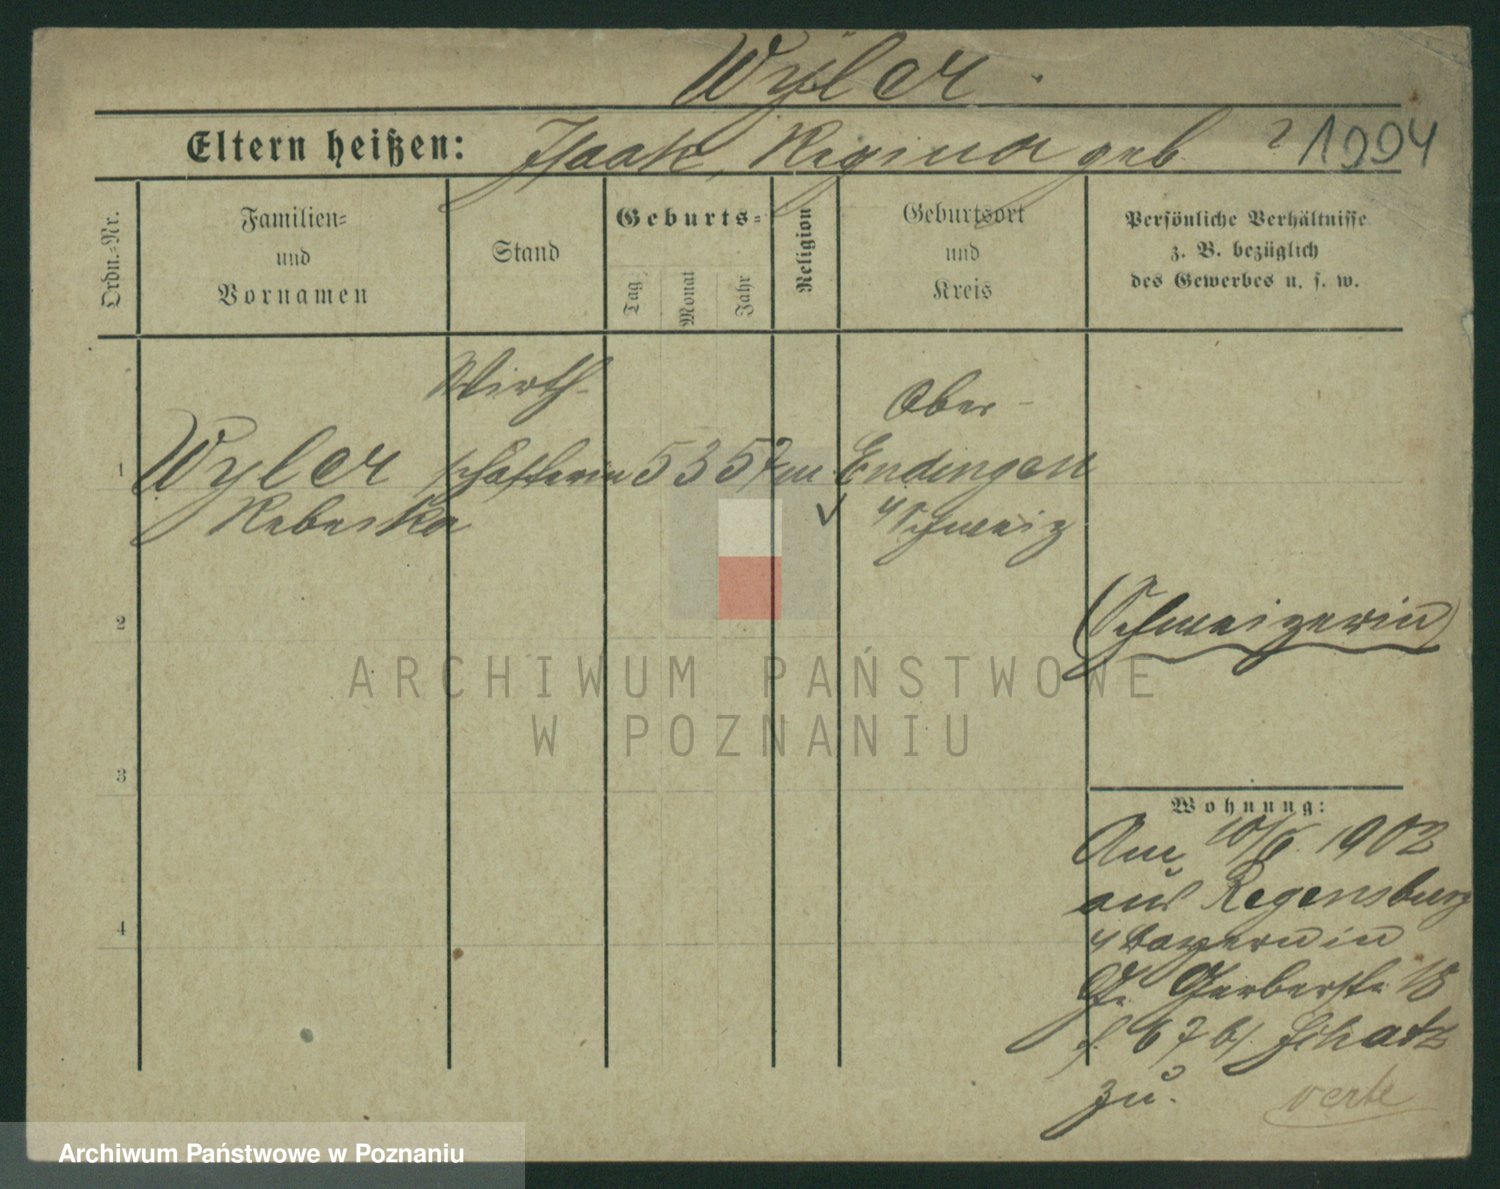 Wyler.
Eltern heißen: Isaak, Regina geb ? 1994
Ordn.-Nr.
Familien-
und
Vornamen
Stand
Geburts-
Tag
Monat
Jahr
Religion
Geburtsort
und
Kreis
Persönliche Verhältnisse
z. B. bezüglich
des Gewerbes u. s. w.
Wirth-
Ober-
1 Wyler schafterin 5 3 52 m Endingen
Rebecka Schweiz
2
(Schweizerin)
ARCHIWUM PAŃSTWOWE
W POZNANIU
3
Wohnung:
Am 10/6 1902
aus Regensburg
Bayern in
Gr. Gerberstr 18
b/ Schatz
zu.
verte
4
Archiwum Państwowe w Poznaniu